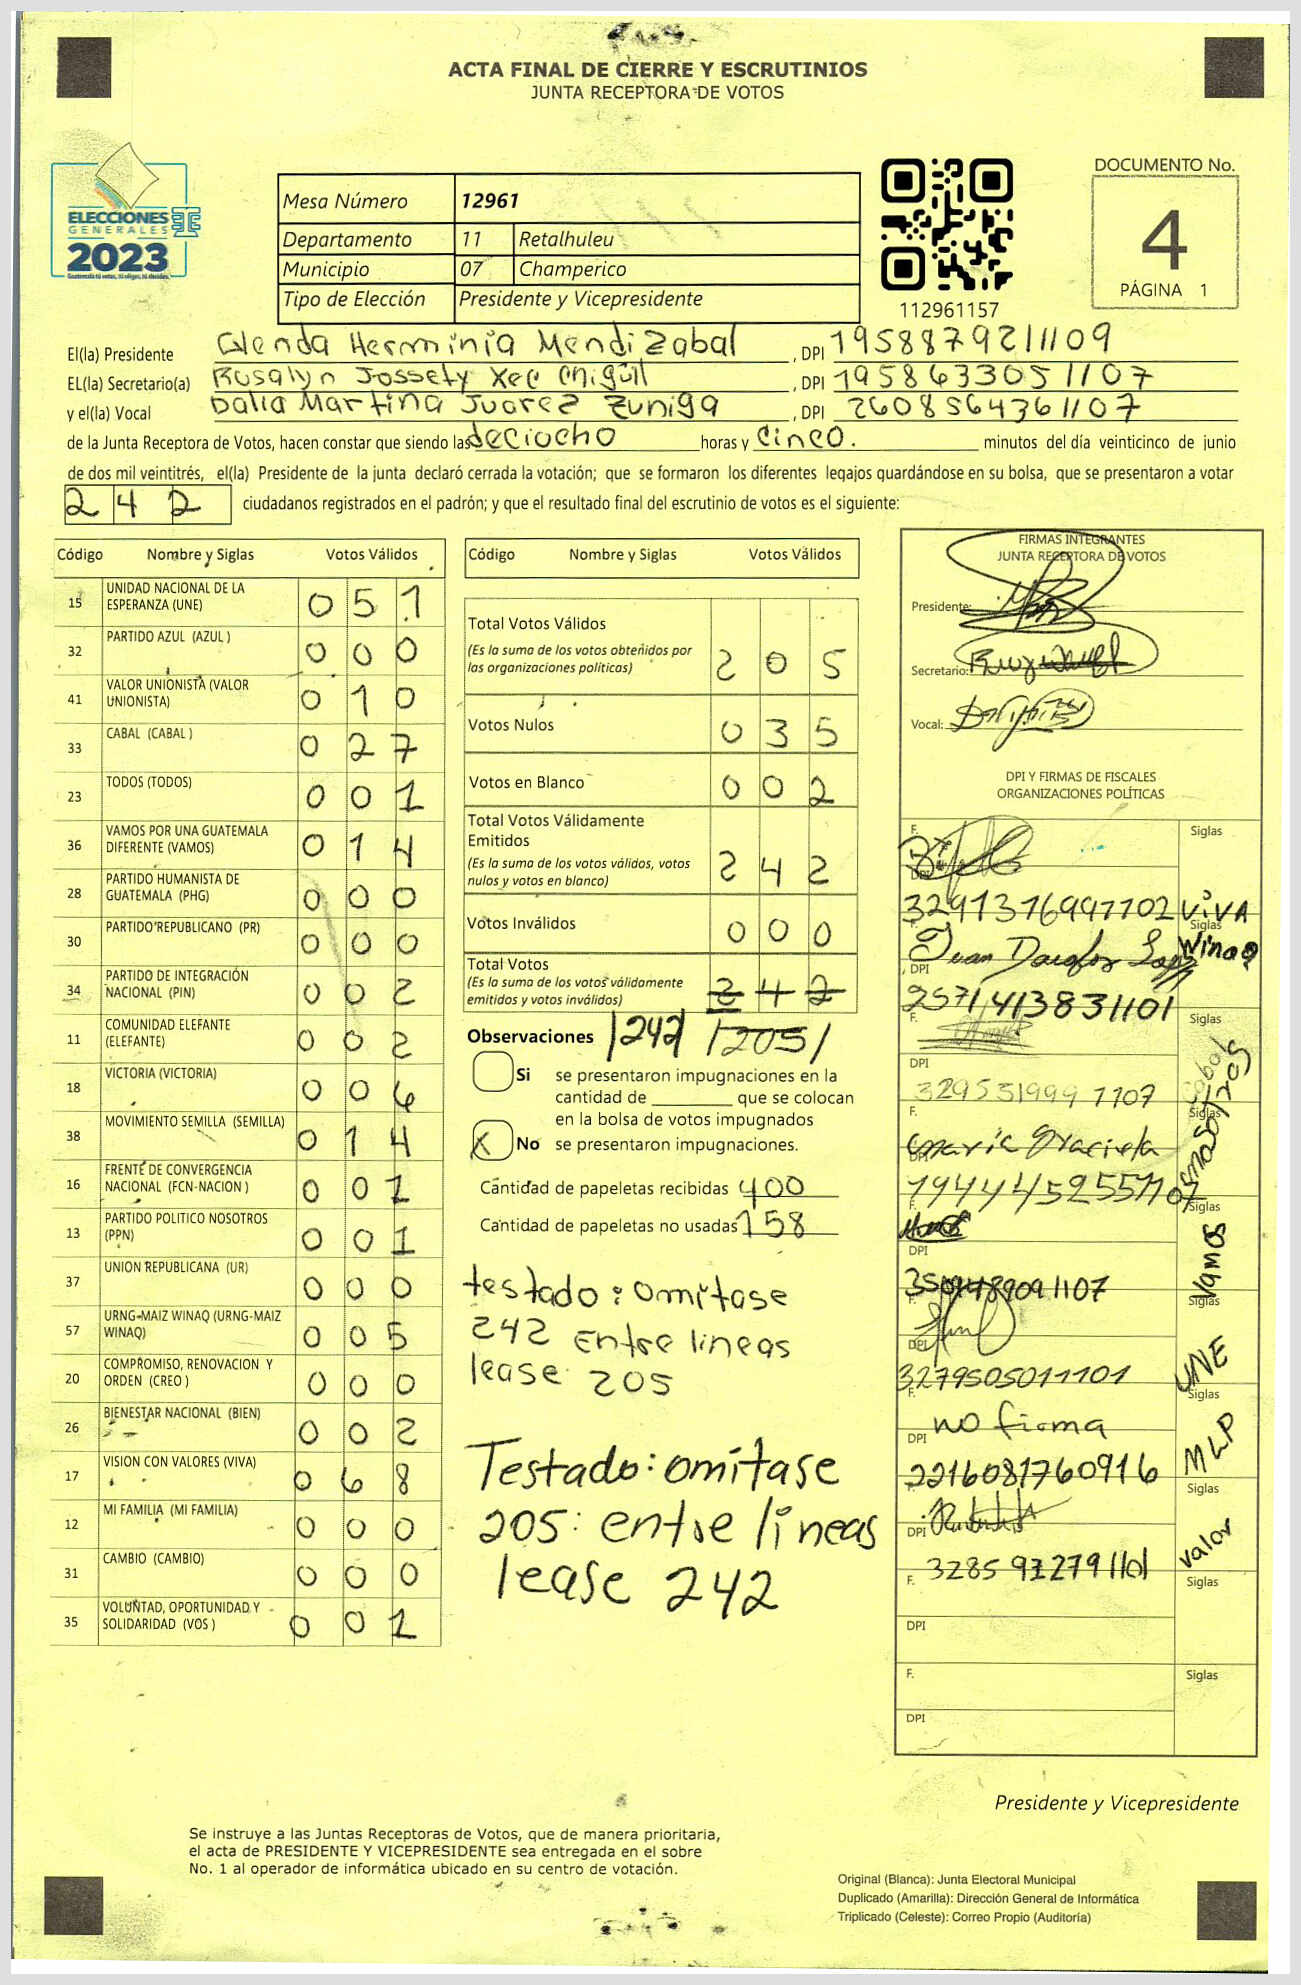 ACTA FINAL DE CIERRE Y ESCRUTINIOS
JUNTA RECEPTORA DE VOTOS
ELECCIONES
GENERALES
2023
Mesa Número 12961
Departamento 11 Retalhuleu
Municipio 07 Champerico
Tipo de Elección Presidente y Vicepresidente
112961157
DOCUMENTO No.
4
PÁGINA 1
El(la) Presidente Glenda Herminia Mendizabal, DPI 1958879211109
EL(la) Secretario(a) Rosalyn Jossety Xec Chigüil, DPI 1958633051107
y el(la) Vocal Dalia Martina Juarez Zuniga, DPI 2608564361107
de la Junta Receptora de Votos, hacen constar que siendo las deciocho horas y cinco. minutos del día veinticinco de junio
de dos mil veintitrés, el(la) Presidente de la junta declaró cerrada la votación; que se formaron los diferentes legajos quardándose en su bolsa, que se presentaron a votar
242 ciudadanos registrados en el padrón; y que el resultado final del escrutinio de votos es el siguiente:
Código Nombre y Siglas Votos Válidos
15 UNIDAD NACIONAL DE LA ESPERANZA (UNE) 051
32 PARTIDO AZUL (AZUL ) 000
41 VALOR UNIONISTA (VALOR UNIONISTA) 010
33 CABAL (CABAL ) 027
23 TODOS (TODOS) 001
36 VAMOS POR UNA GUATEMALA DIFERENTE (VAMOS) 014
28 PARTIDO HUMANISTA DE GUATEMALA (PHG) 000
30 PARTIDO REPUBLICANO (PR) 000
34 PARTIDO DE INTEGRACIÓN NACIONAL (PIN) 002
11 COMUNIDAD ELEFANTE (ELEFANTE) 002
18 VICTORIA (VICTORIA) 006
38 MOVIMIENTO SEMILLA (SEMILLA) 014
16 FRENTE DE CONVERGENCIA NACIONAL (FCN-NACION ) 001
13 PARTIDO POLITICO NOSOTROS (PPN) 001
37 UNION REPUBLICANA (UR) 000
57 URNG-MAIZ WINAQ (URNG-MAIZ WINAQ) 005
20 COMPROMISO, RENOVACION Y ORDEN (CREO ) 000
26 BIENESTAR NACIONAL (BIEN) 002
17 VISION CON VALORES (VIVA) 068
12 MI FAMILIA (MI FAMILIA) 000
31 CAMBIO (CAMBIO) 000
35 VOLUNTAD, OPORTUNIDAD Y SOLIDARIDAD (VOS ) 001
Código Nombre y Siglas Votos Válidos
Total Votos Válidos
(Es la suma de los votos obtenidos por
las organizaciones políticas) 205
Votos Nulos 035
Votos en Blanco 002
Total Votos Válidamente
Emitidos
(Es la suma de los votos válidos, votos
nulos y votos en blanco) 242
Votos Inválidos 000
Total Votos
(Es la suma de los votos válidamente
emitidos y votos inválidos) 242
Observaciones /242/ /205/
Si se presentaron impugnaciones en la
cantidad de ________ que se colocan
en la bolsa de votos impugnados
X No se presentaron impugnaciones.
Cantidad de papeletas recibidas 400
Cantidad de papeletas no usadas 158
testado: omitase
242 Entre lineas
lease 205
Testado: omítase
205: entre líneas
lease 242
FIRMAS INTEGRANTES
JUNTA RECEPTORA DE VOTOS
Presidente:
Secretario:
Vocal:
DPI Y FIRMAS DE FISCALES
ORGANIZACIONES POLÍTICAS
F. Siglas
DPI 3291316997702 ViVA
Siglas Winaq
DPI 2571413831101
F. Siglas
DPI 329531999 1107 Cabal
F. Siglas
DPI
F. Siglas
DPI Vamos
F. Siglas
DPI 3279505011101 UNE
F. no firma Siglas
DPI 2216081760916 MLP
Siglas
DPI 3285 91279 1101 valor
F. Siglas
DPI
F. Siglas
DPI
Presidente y Vicepresidente
Se instruye a las Juntas Receptoras de Votos, que de manera prioritaria,
el acta de PRESIDENTE Y VICEPRESIDENTE sea entregada en el sobre
No. 1 al operador de informática ubicado en su centro de votación.
Original (Blanca): Junta Electoral Municipal
Duplicado (Amarilla): Dirección General de Informática
Triplicado (Celeste): Correo Propio (Auditoría)